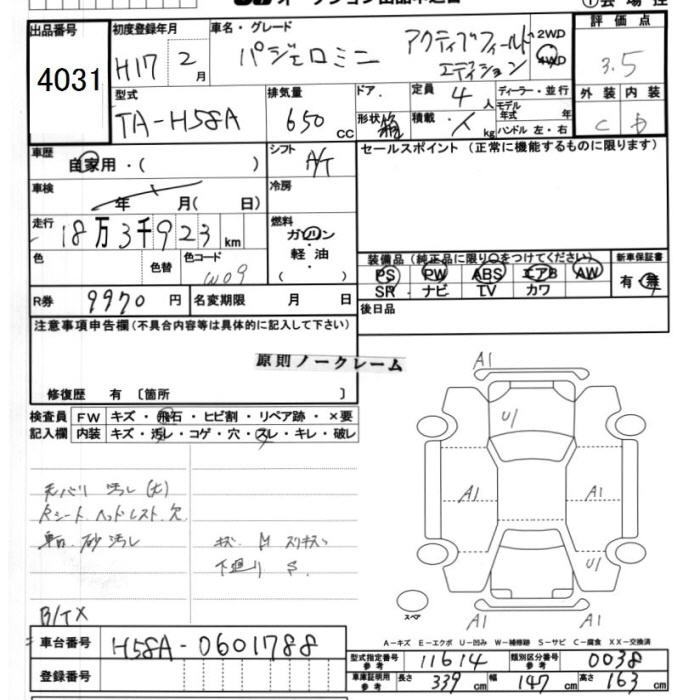 出品番号
4031
初度登録年月
H17 2月
車名・グレード
パジェロミニ アクティブフィールド
エディション
2WD
4WD
評価点
3.5
外装 内装
C D
型式
TA-H58A
排気量
650 CC
ドア・
形状
定員 4 人
積載・ kg
ディーラー・並行
モデル
年式 年
ハンドル 左・右
車歴
自家用・( )
シフト
A/T
セールスポイント (正常に機能するものに限ります)
車検
年 月( 日)
冷房
走行
18万3千923 km
燃料
ガソリン
軽油
( )
色
色替
色コード
W09
装備品(純正品に限り○をつけてください)
PS PW ABS エアB AW
SR ナビ TV カワ
新車保証書
有・無
R券 9970 円
名変期限 月 日
後日品
注意事項申告欄(不具合内容等は具体的に記入して下さい)
原則ノークレーム
修復歴 有 〔箇所 〕
検査員
記入欄
FW キズ・飛石・ヒビ割・リペア跡・×要
内装 キズ・汚レ・コゲ・穴・スレ・キレ・破レ
天バリ 汚レ(大)
Rシート ヘッドレスト欠
車内 砂 汚レ
キズ・凹 スリキズ
下廻り S
B/TX
A1
U1
A1
A1
U1
A1
A1
スペア
A-キズ E-エクボ U-凹み W-補修跡 S-サビ C-腐食 XX-交換済
車台番号
H58A-0601788
登録番号
型式指定番号
参考
11614
類別区分番号
参考
0038
車庫証明用
参考
長さ 339 cm 幅 147 cm 高さ 163 cm